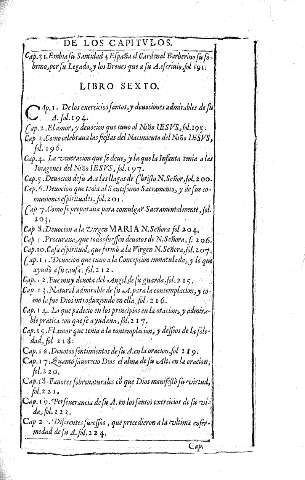 DE LOS CAPITVLOS.
Cap.32. Embia su Santidad a España el Cardenal Barberino su so-
brino, por su Legado, y los Breues que a su A.
fol 191.
LIBRO SEXTO.
Cap.1. De los exercicios santos, y deuociones admirables de su
A. fol.194.
Cap.2. El amor, y deuocion que tuuo al Niño IESVS, fol.195.
Cap.3. Como celebraua las fiestas del Nacimiento del Niño IESVS,
fol.196.
Cap.4. La veneracion que se deue, y la que la Infanta tenia a las
Imagenes del Niño IESVS, fol.197.
Cap.5. Deuocion de su A. a las llagas de Christo N. Señor, fol.200.
Cap.6. Deuocion que tenia al Santissimo Sacramento, y de sus co-
muniones espirituales, fol.201.
Cap.7. Como se preparaua para comulgar Sacramentalmente, fol.
203.
Cap.8. Deuocion a la Virgen MARIA N. Señora fol 204.
Cap.9. Procuraua, que todos fuessen deuotos de N. Señora, f. 206.
Cap.10. Casa espiritual, que formò a la Virgen N. Señora, fol.207.
Cap.11. Deuocion que tuuo a la Concepcion inmaculada, y lo que
ayudò a su causa, fol.212.
Cap.12. Fue muy deuota del Angel de su guarda, fol.215.
Cap.13. Natural admirable de su A. para la contemplacion, y co-
mo le fue Dios introduziendo en ella, fol.216.
Cap.14. Lo que padecio en los principios en la oracion, y admira-
ble practica con que se ayudaua, fol.217.
Cap.15. El amor que tenia a la contemplacion, y desseos de la sole-
dad, fol 218.
Cap.16. Deuotos sentimientos de su A. en la oracion, fol 219.
Cap.17. Quanto fauorecio Dios el alma de su Alt. en la oracion,
fol.220.
Cap.18. Fauores sobrenaturales cō que Dios manifestò su virtud,
fol.221.
Cap.19. Perseuerancia de su A. en los santos exercicios de su vi-
da, fol.223.
Cap.20. Diferentes sucessos, que precedieron a la vltima enfer-
medad de su A. fol.224.
Cap.